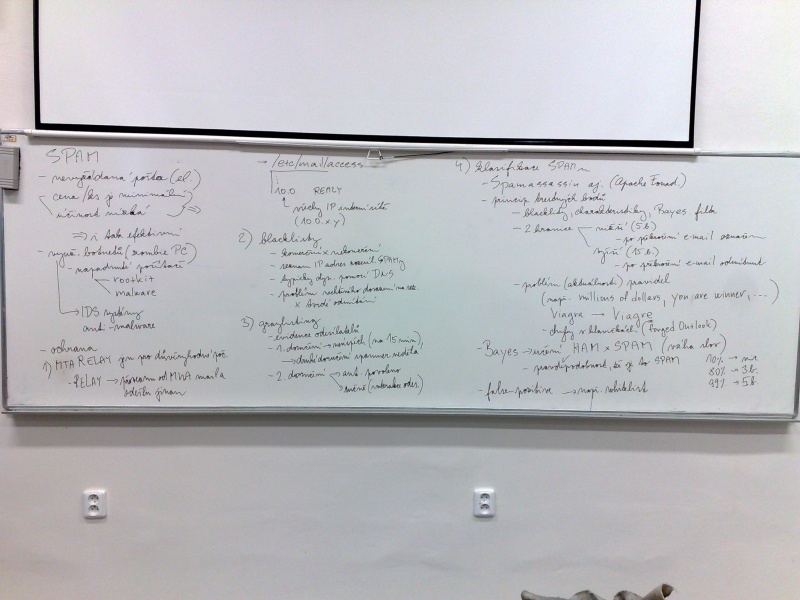 SPAM
- nevyžádaná pošta (el.)
cena/ks je minimální
účinnost nízká
⇒ i tak efektivní
- využ. botnetů (zombie PC)
- napadnuté počítači
rootkit
malware
IDS systémy
anti-malware
- ochrana
1) MTA RELAY jen pro důvěryhodné poč.
- RELAY → přijmu od MUA mail a
odešlu jinam
- /etc/mail/access
10.0 RELAY
všechy IP interní sítě
(10.0.x.y)
2) blacklisty
- komerční × nekomerční
- seznam IP adres rozesíl. SPAMy
- typicky dyn. pomocí DNS
- problém rychlého dorazení na sez.
× tvrdé odmítání
3) graylisting
- evidence odesílatelů
- 1. doručení → neúspěch (na 15 min),
→ druhé doručení spammer nedělá
- 2. doručení → aut. povoleno
ručně (interakce odes.)
4) klasifikace SPAMu
- Spamassassin aj. (Apache Found.)
- princip trestných bodů
- blacklisty, charakteristiky, Bayes filtr
- 2 hranice
nižší (5 b.)
- po překročení e-mail označen
vyšší (15 b.)
- po překročení e-mail odmítnut
- problém (aktuálnosti) pravidel
(např. millions of dollars, you are winner, ...)
Viagra → V1agre
- chyby v hlavičkách (forged Outlook)
- Bayes → učení HAM × SPAM (váha slov)
- pravděpodobnost, že je to SPAM
70% → nic
80% → 3 b.
99% → 5 b.
- false-positive → např. whitelist